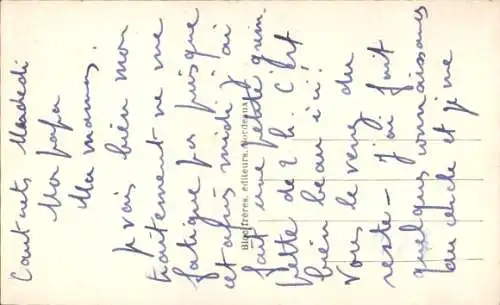 Cauterets, Mercredi
Mon papa
Ma maman.
Je vais bien mon
traitement ne me
fatigue pas puisque
cet après midi j'ai
fait une petite grim-
pette de 2 h. C'est
bien beau ici!
Vous le verrez du
reste - J'ai fait
quelques connaissances
du cercle et je me
Bloc frères, éditeurs, Bordeaux